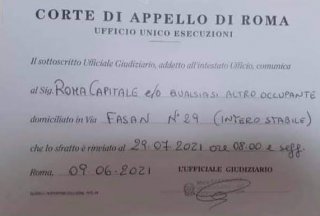 CORTE DI APPELLO DI ROMA
UFFICIO UNICO ESECUZIONI
Il sottoscritto Ufficiale Giudiziario, addetto all'intestato Ufficio, comunica
al Sig. ROMA CAPITALE e/o QUALSIASI ALTRO OCCUPANTE
domiciliato in Via FASAN N° 29 (INTERO STABILE)
che lo sfratto è rinviato al 29.07.2021 ore 08.00 e segg.
Roma, 09-06-2021 L'UFFICIALE GIUDIZIARIO